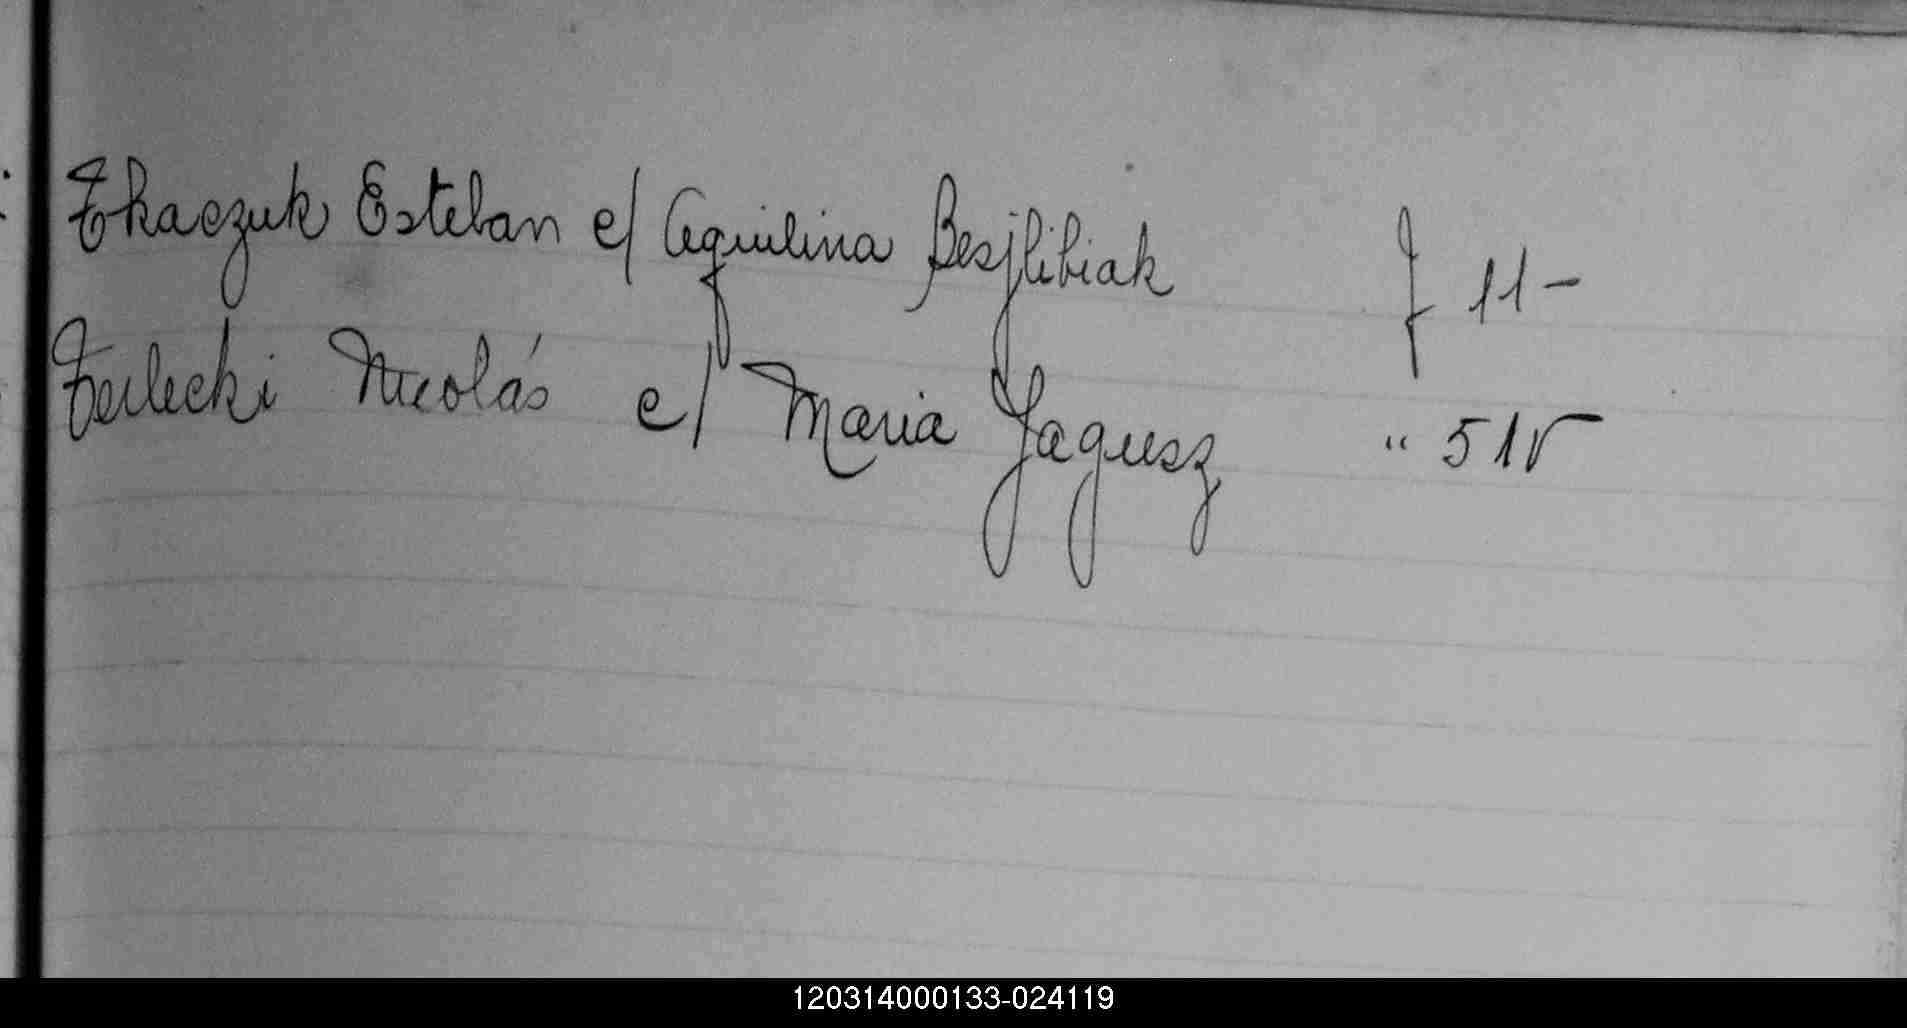 Tkaczuk Esteban c/ Aquilina Besjlibiak f 11-
Terlecki Nicolás c/ Maria Jagusz " 51v
120314000133-024119